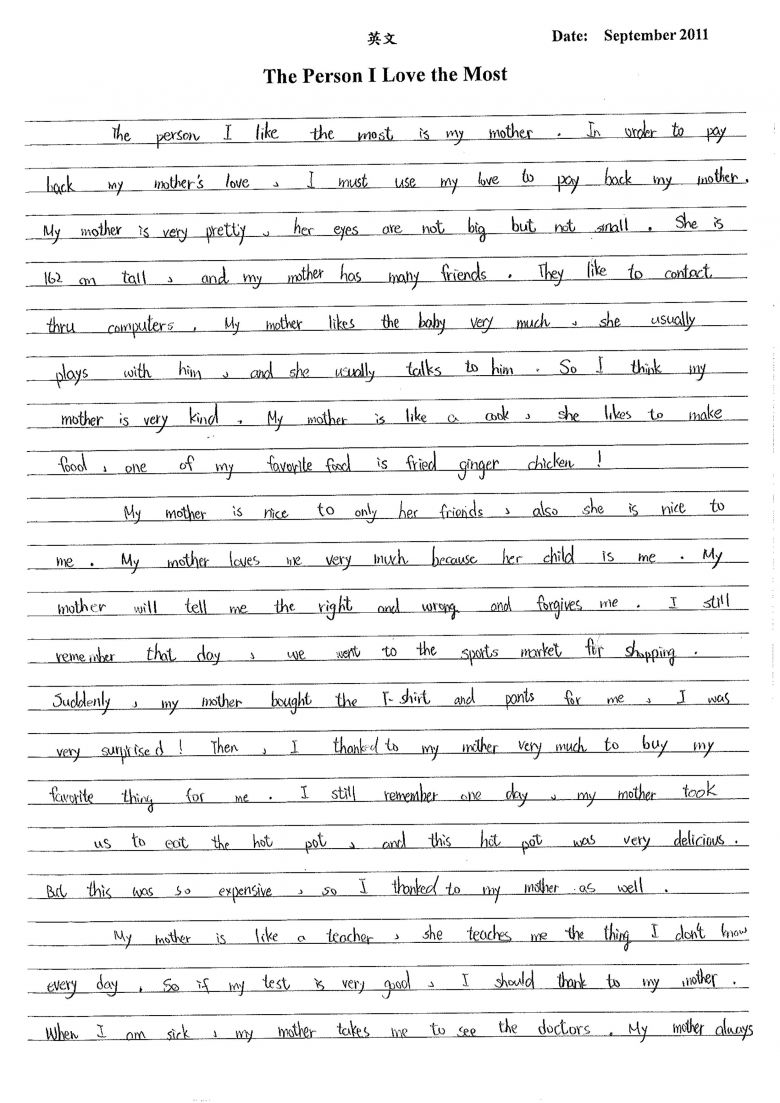 英文
Date: September 2011
The Person I Love the Most
The person I like the most is my mother. In order to pay
back my mother's love, I must use my love to pay back my mother.
My mother is very pretty, her eyes are not big but not small. She is
162 cm tall, and my mother has many friends. They like to contact
thru computers. My mother likes the baby very much, she usually
plays with him, and she usually talks to him. So I think my
mother is very kind. My mother is like a cook, she likes to make
food, one of my favorite food is fried ginger chicken!
My mother is nice to only her friends, also she is nice to
me. My mother loves me very much because her child is me. My
mother will tell me the right and wrong and forgives me. I still
remember that day, we went to the sports market for shopping.
Suddenly, my mother bought the T-shirt and pants for me, I was
very surprised! Then, I thanked to my mother very much to buy my
favorite thing for me. I still remember one day, my mother took
us to eat the hot pot, and this hot pot was very delicious.
But this was so expensive, so I thanked to my mother as well.
My mother is like a teacher, she teaches me the thing I don't know
every day. So if my test is very good, I should thank to my mother.
When I am sick, my mother takes me to see the doctors. My mother always